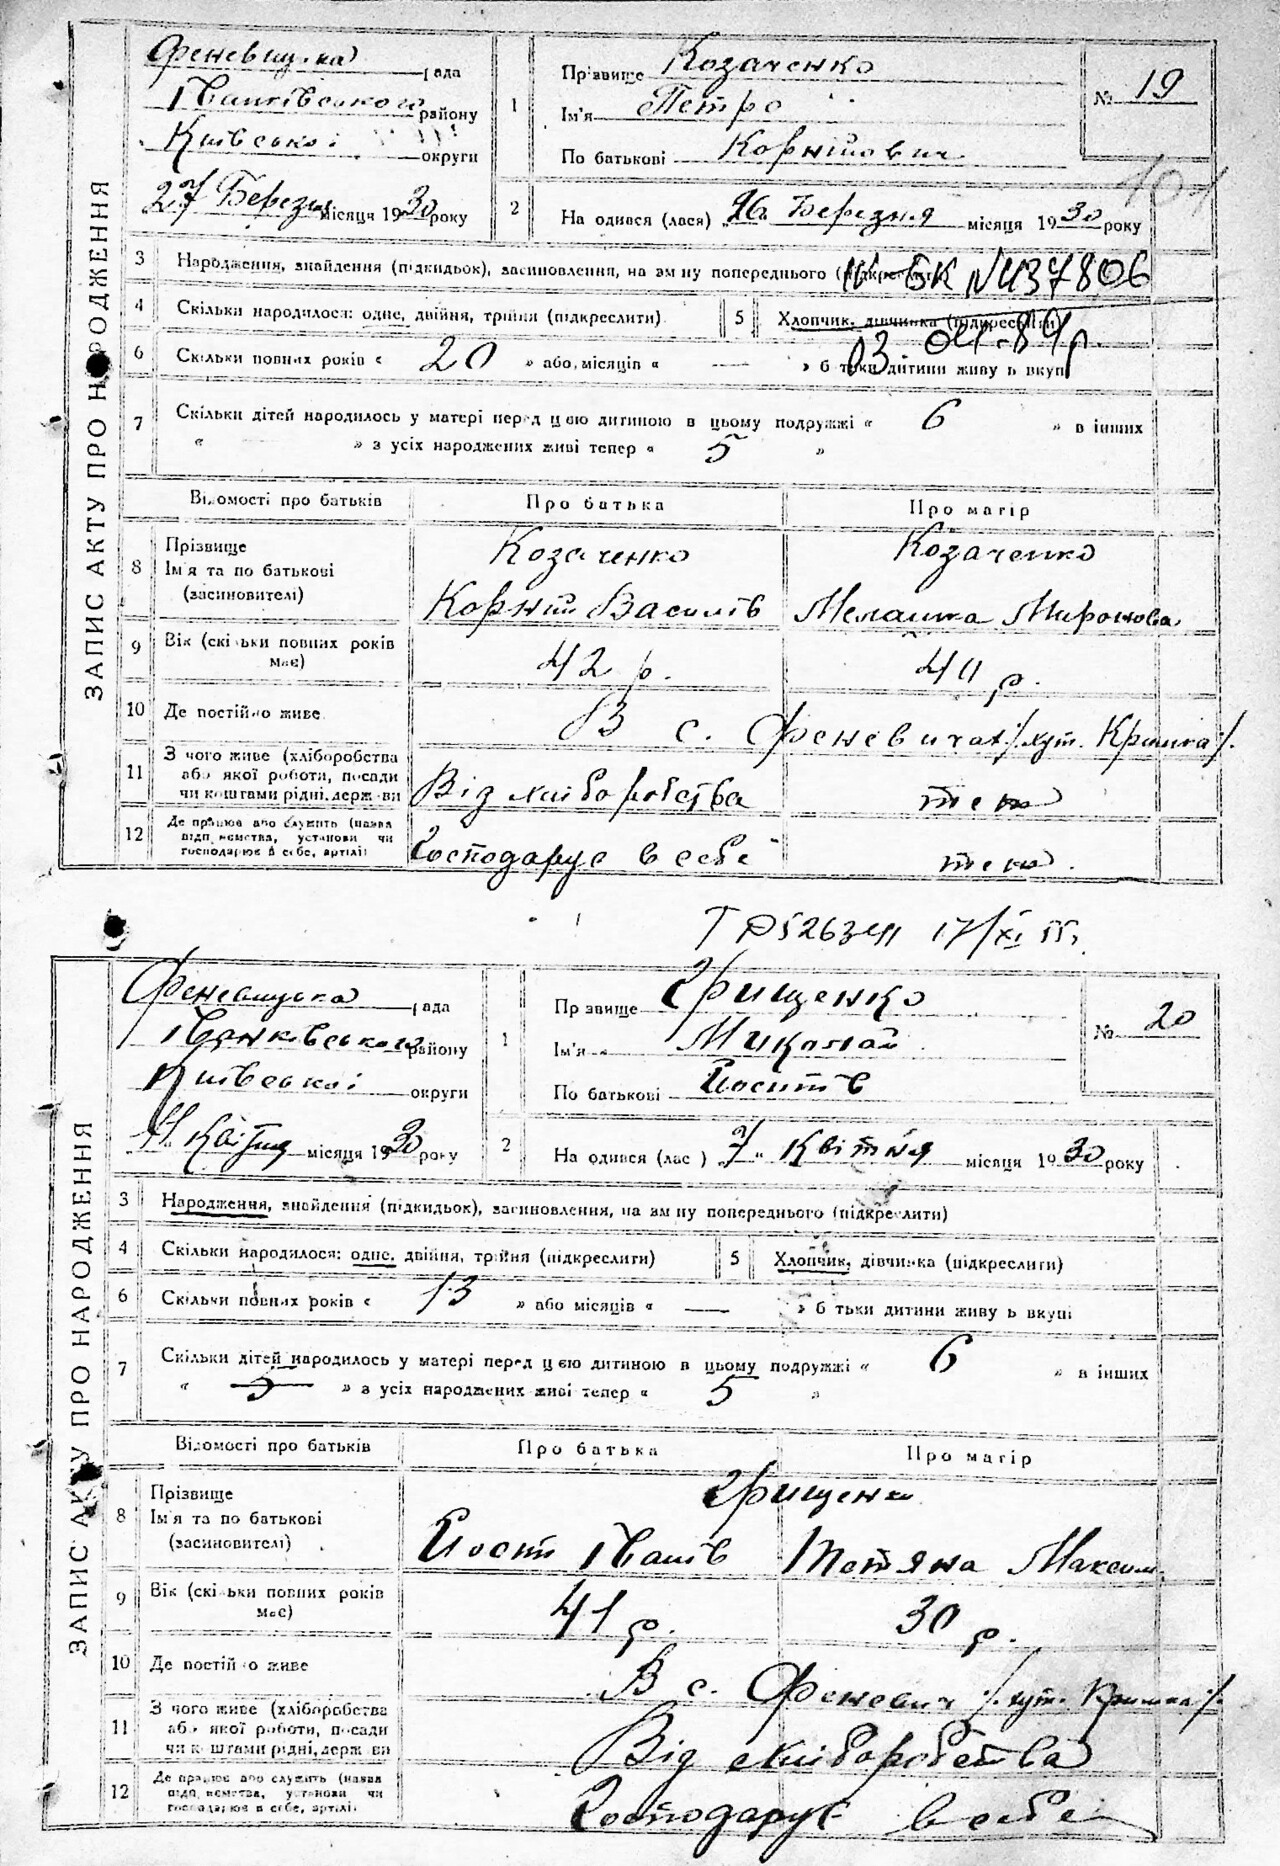 ЗАПИС АКТУ ПРО НАРОДЖЕННЯ
Феневицька рада
Іванківського району
Київської округи
27 Березня місяця 1930 року
1
Прізвище Козаченко
Ім'я Петро
По батькові Корнійович
№ 19
101
2 На одився (лася) 26 Березня місяця 1930 року
3 Народження, знайдення (підкидьок), засиновлення, на зм ну попереднього
IV-БК № 437806
4 Скільки народилося: одне, двійня, трійня (підкреслити)
5 Хлопчик, дівчинка (підкреслити)
03. 04. 89 р.
6 Скільки повних років « 20 » або місяців « — » б тьки дитини живу ь вкупі
7 Скільки дітей народилось у матері перед цією дитиною в цьому подружжі « 6 » в інших
« » з усіх народжених живі тепер « 5 »
Відомості про батьків Про батька Про матір
8 Прізвище Ім'я та по батькові (засиновителі)
Козаченко Козаченко
Корній Василів Мелашка Миронова
9 Вік (скільки повних років має) 42 р. 40 р.
10 Де постійно живе В с. Феневичах /хут. Кришка/.
11 З чого живе (хліборобства або якої роботи, посади чи коштами рідні, держ ви
Від хліборобства теж
12 Де працює або служить (назва підп иємства, установи чи господарює в себе, артілі)
Господарує в себе теж.
17/XI 55,
ЗАПИС АКТУ ПРО НАРОДЖЕННЯ
Феневицька рада
Іванківського району
Київської округи
11 Квітня місяця 1930 року
1
Пр звище Грищенко
Ім'я Миколай
По батькові Йосипів
№ 20
2 На одився (лас ) 7 Квітня місяця 1930 року
3 Народження, знайдення (підкидьок), засиновлення, на зм ну попереднього (підкреслити)
4 Скільки народилося: одне, двійня, трійня (підкреслити)
5 Хлопчик, дівчинка (підкреслити)
6 Скільки повних років « 13 » або місяців « — » б тьки дитини живу ь вкупі
7 Скільки дітей народилось у матері перед цією дитиною в цьому подружжі « 6 » в інших
« 5 » з усіх народжених живі тепер « 5 »
Відомості про батьків Про батька Про матір
8 Прізвище Ім'я та по батькові (засиновителі)
Грищенки
Йосип Іванів Тетяна Максим.
9 Вік (скільки повних років має) 41 р. 30 р.
10 Де постій о живе В с. Феневич /хут. Кришка/.
11 З чого живе (хліборобства або якої роботи, посади чи коштами рідні, держ ви
Від хліборобства
12 Де працює або служить (назва підп иємства, установи чи господарює в себе, артілі)
Господарує в себе